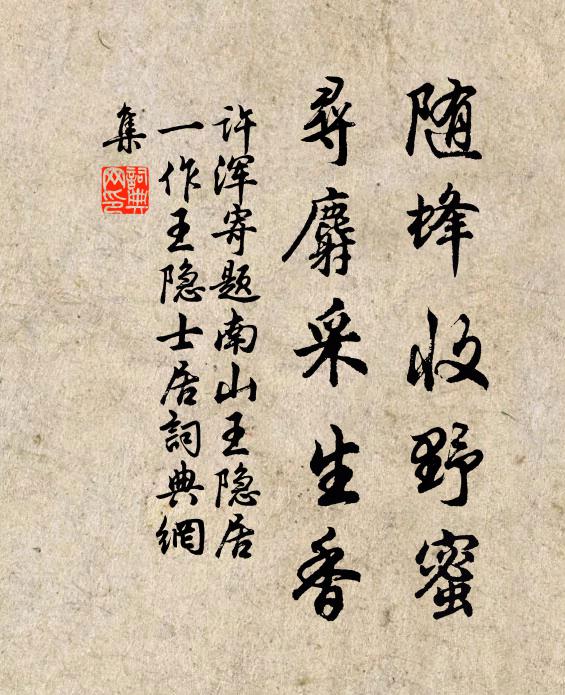 随蜂收野蜜
寻麝采生香
许浑寄题南山王隐居
一作王隐士居詞典網
集
詞典网印